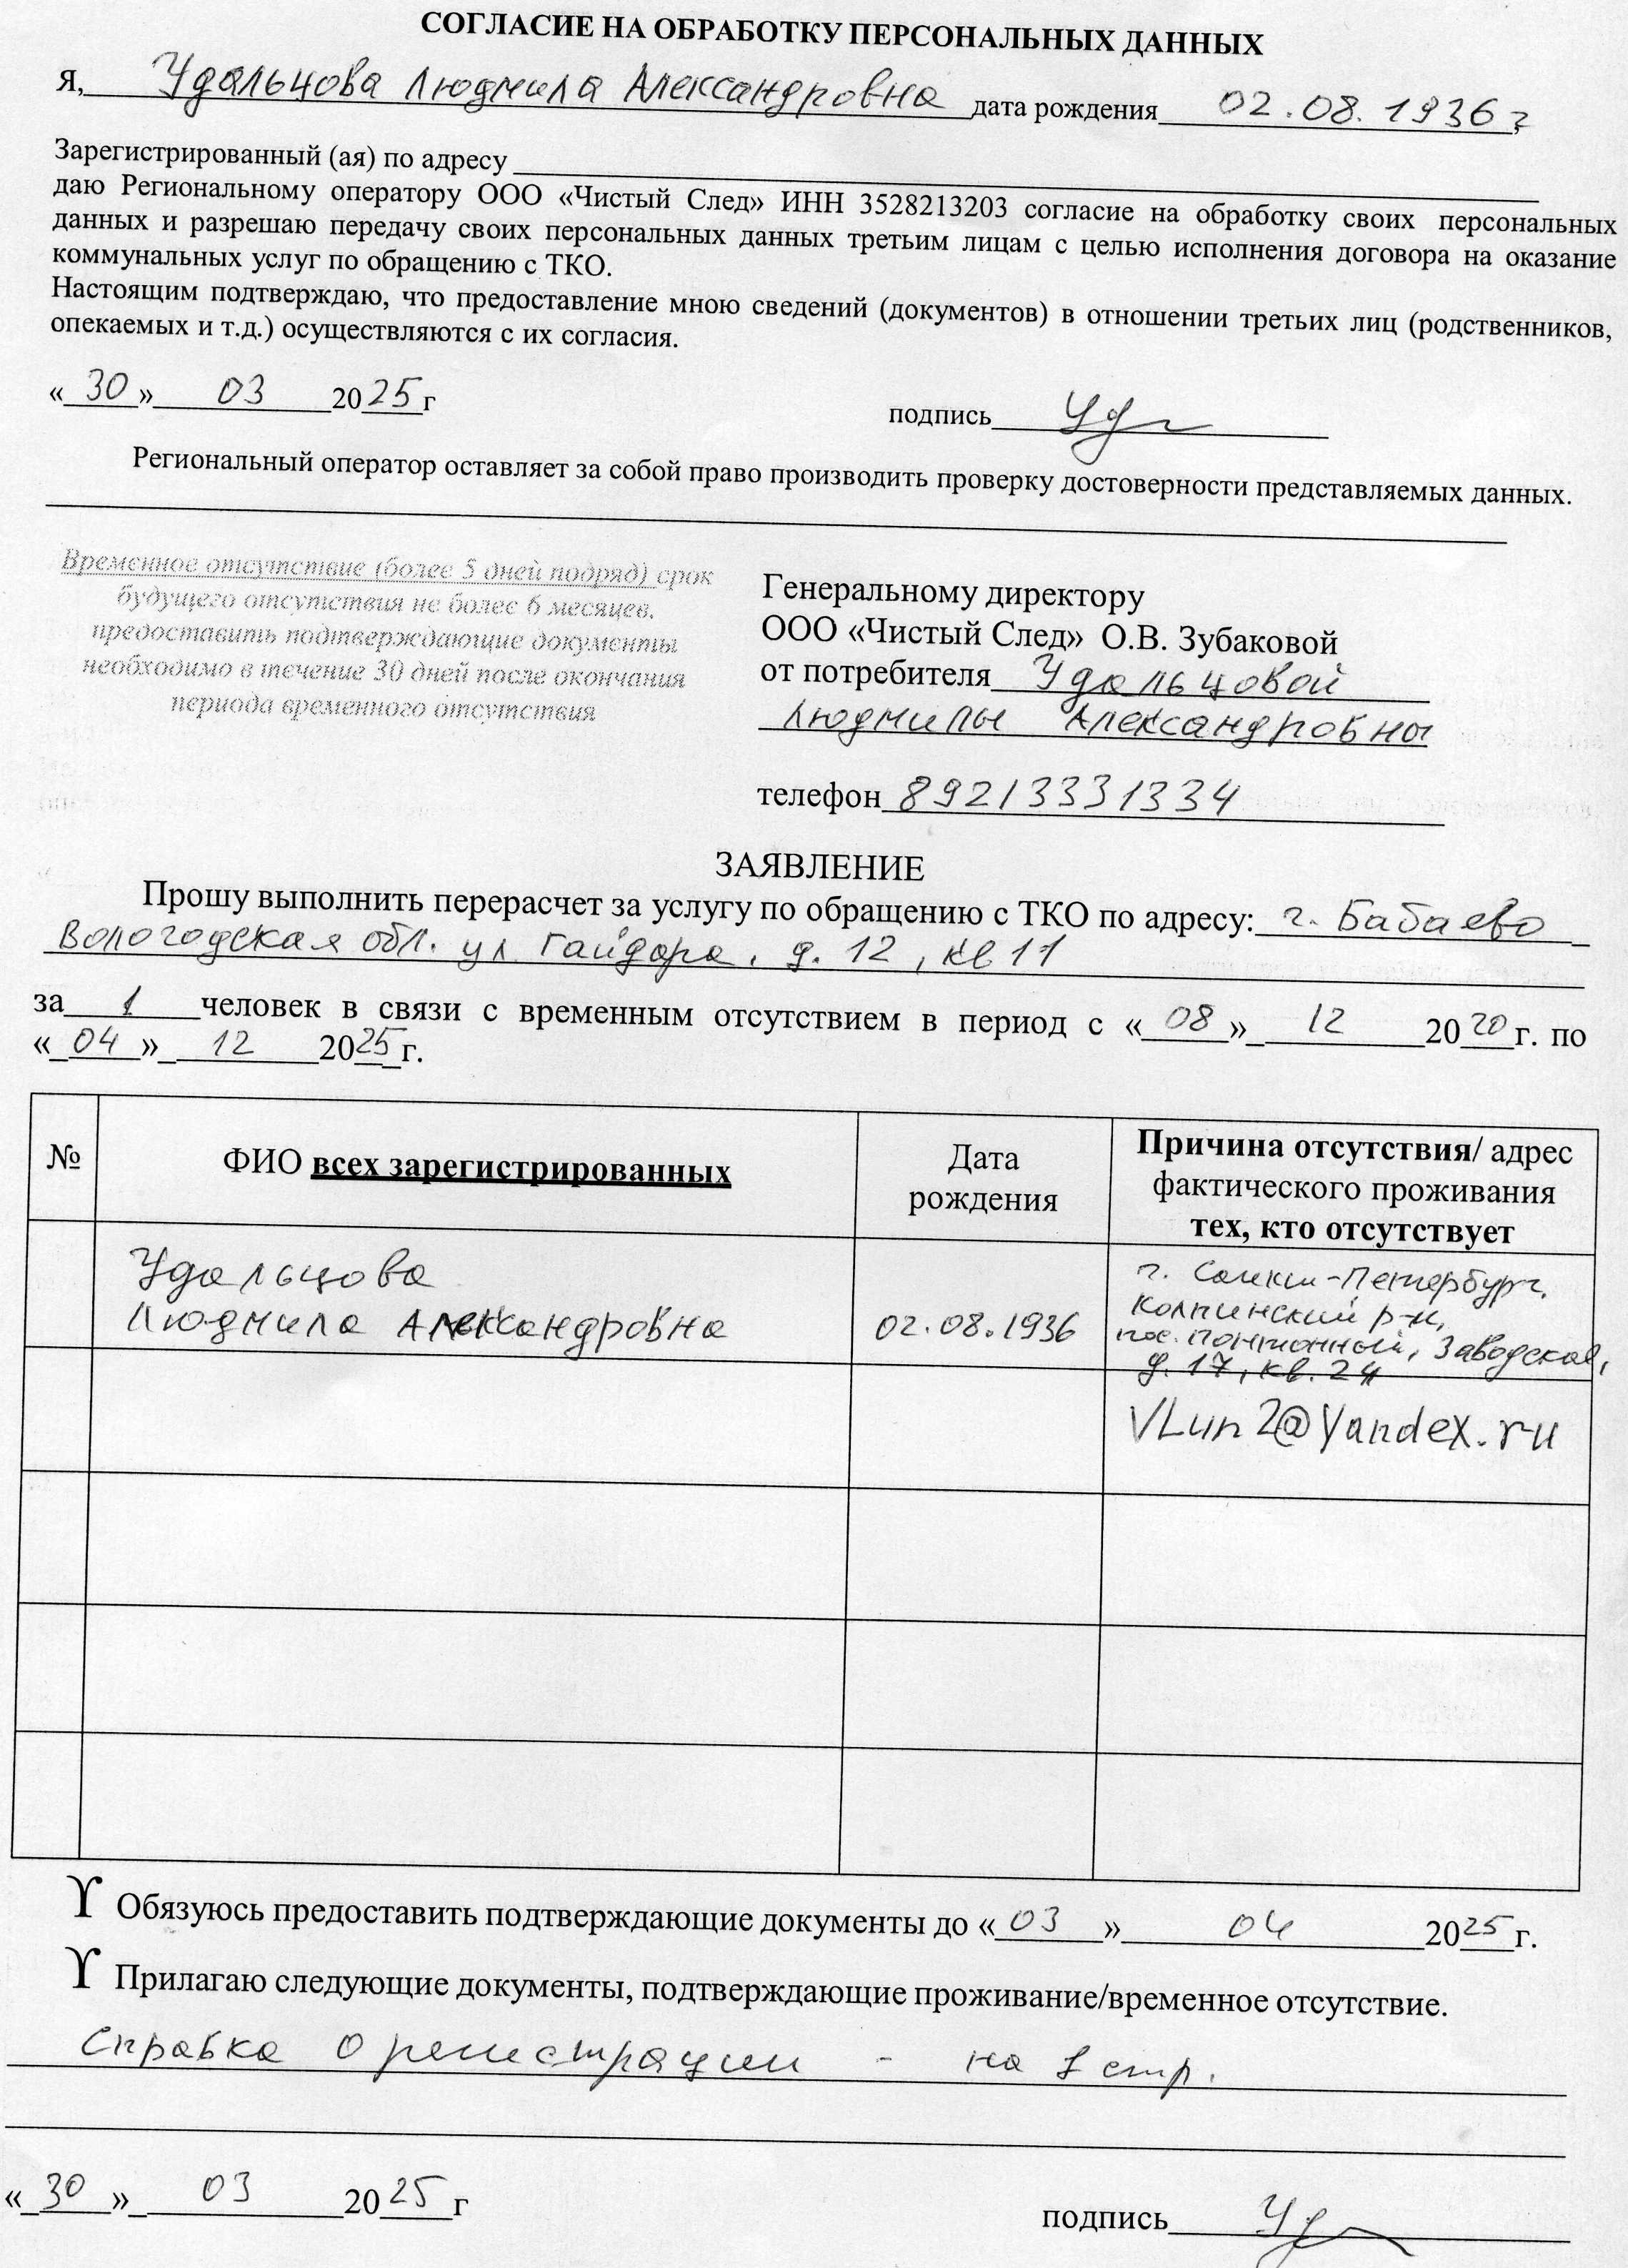 СОГЛАСИЕ НА ОБРАБОТКУ ПЕРСОНАЛЬНЫХ ДАННЫХ
Я, Удальцова Людмила Александровна дата рождения 02.08.1936 г
Зарегистрированный (ая) по адресу
даю Региональному оператору ООО «Чистый След» ИНН 3528213203 согласие на обработку своих персональных
данных и разрешаю передачу своих персональных данных третьим лицам с целью исполнения договора на оказание
коммунальных услуг по обращению с ТКО.
Настоящим подтверждаю, что предоставление мною сведений (документов) в отношении третьих лиц (родственников,
опекаемых и т.д.) осуществляются с их согласия.
«30» 03 2025г
подпись Уд
Региональный оператор оставляет за собой право производить проверку достоверности представляемых данных.
Временное отсутствие (более 5 дней подряд) срок
будущего отсутствия не более 6 месяцев.
предоставить подтверждающие документы
необходимо в течение 30 дней после окончания
периода временного отсутствия
Генеральному директору
ООО «Чистый След» О.В. Зубаковой
от потребителя Удальцовой
Людмилы Александровны
телефон 89213331334
ЗАЯВЛЕНИЕ
Прошу выполнить перерасчет за услугу по обращению с ТКО по адресу: г. Бабаево
Вологодская обл. ул. Гайдара, д. 12, кв 11
за 1 человек в связи с временным отсутствием в период с «08» 12 2020г. по
«04» 12 2025г.
№ ФИО всех зарегистрированных Дата рождения Причина отсутствия/ адрес фактического проживания тех, кто отсутствует
Удальцова
Людмила Александровна
02.08.1936
г. Санкт-Петербург,
Колпинский р-н,
пос. Понтонный, Заводская,
д. 17, кв. 24
VLun2@yandex.ru
ϒ Обязуюсь предоставить подтверждающие документы до «03» 04 2025г.
ϒ Прилагаю следующие документы, подтверждающие проживание/временное отсутствие.
Справка о регистрации - на 1 стр.
«30» 03 2025г
подпись Уд